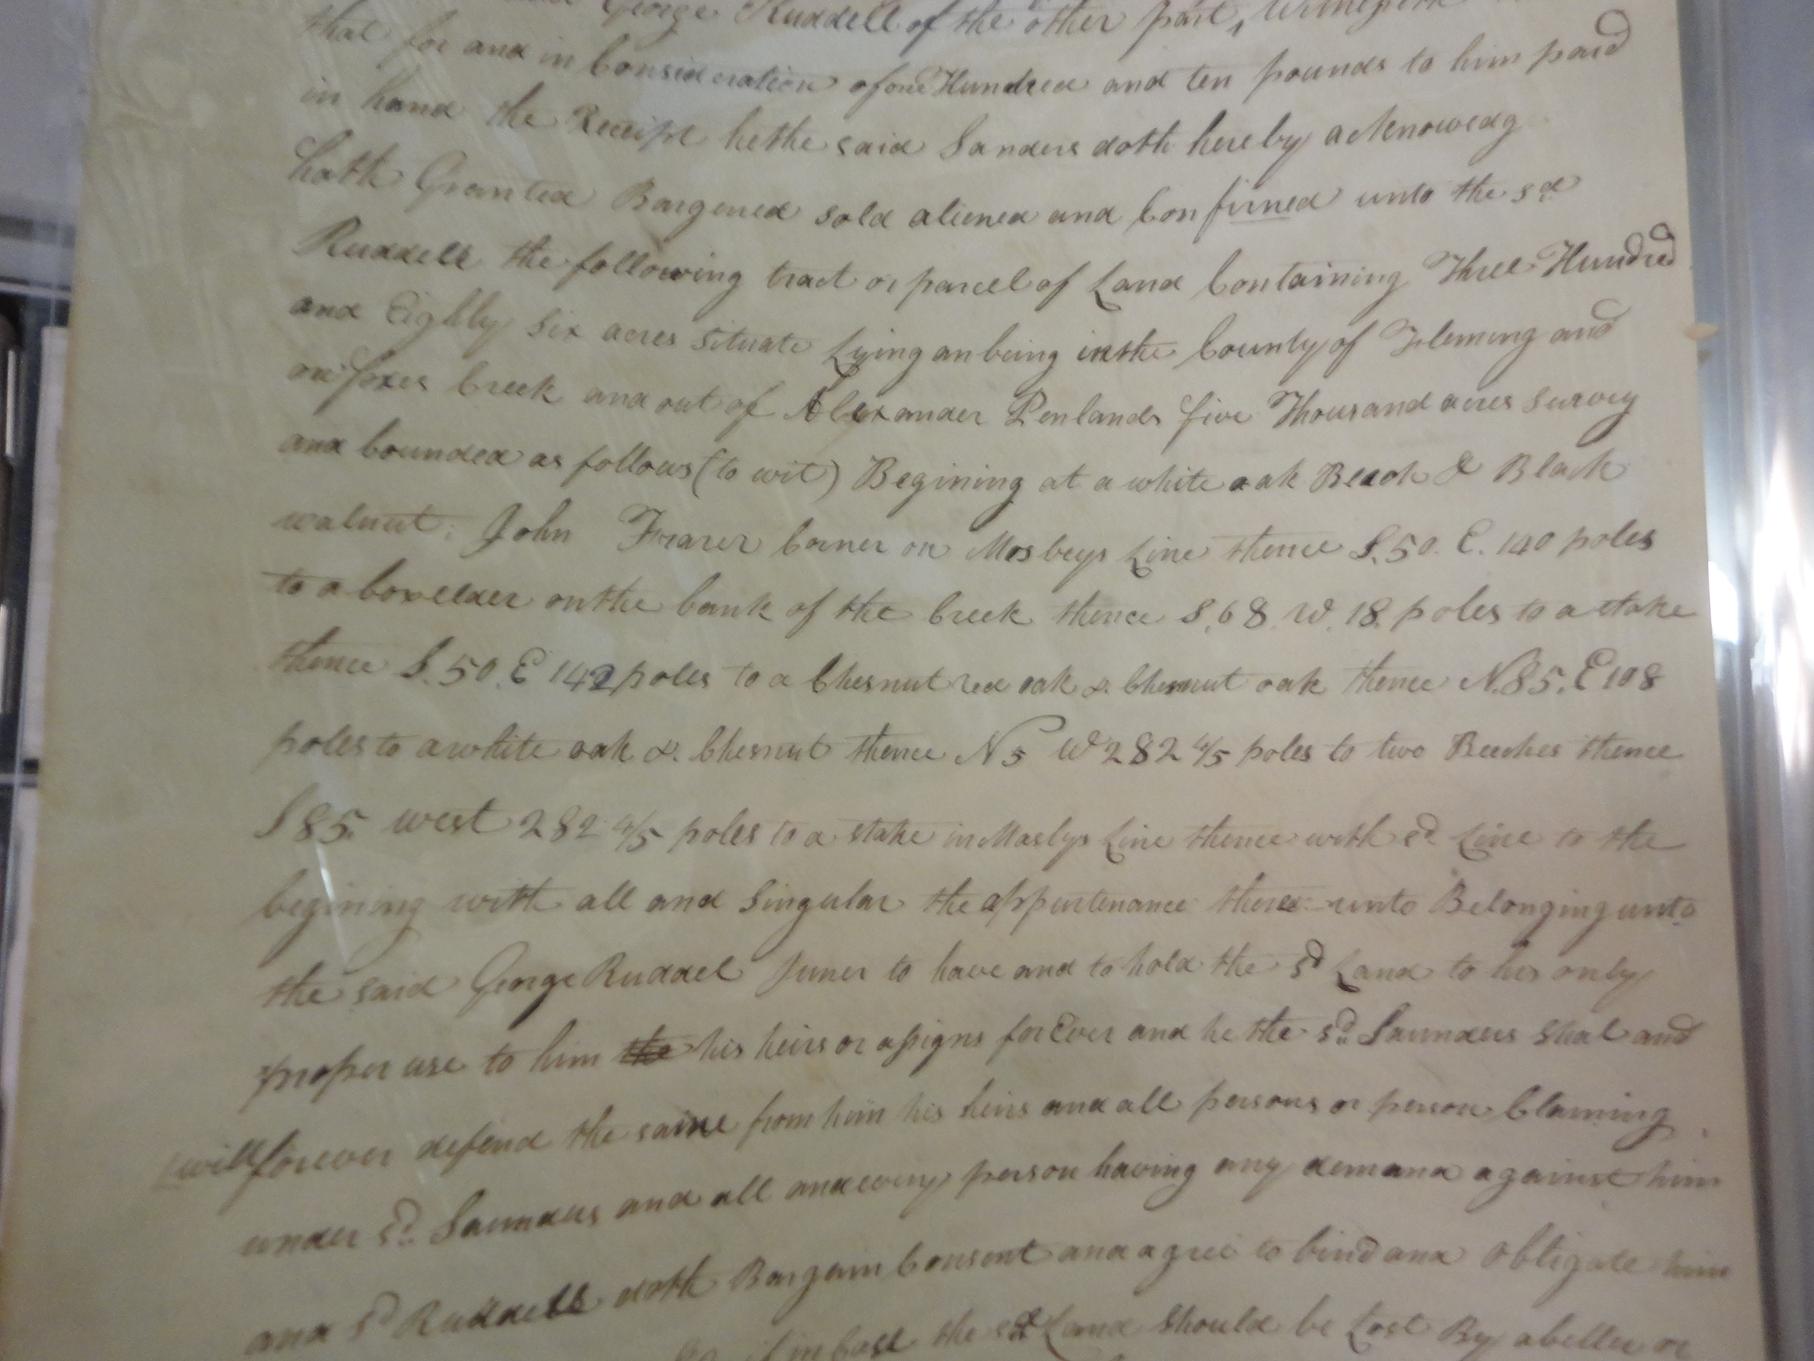 George Ruddell of the other part, Witnesseth
that for and in Consideration of one Hundred and ten pounds to him paid
in hand the Receipt he the said Sanders doth hereby acknowedg
hath Granted Bargened sold aliened and Confirmed unto the sd
Ruddell the following tract or parcel of Land Containing Three Hundred
and Eighty Six acres situate Lying an being in the County of Fleming and
on foxes Creek and out of Alexander Penlands five Thousand acres survey
and bounded as follows (to wit) Begining at a white oak Beach & Black
walnut. John Frazer Corner on Mosbeys Line thence S. 50. E. 140 poles
to a boxelder on the bank of the Creek thence S. 68. W. 18. poles to a stake
thence S. 50. E 142 poles to a Chesnut red oak & Chesnut oak thence N. 85. E 108
poles to a white oak & Chesnut thence N 5 W 282 4/5 poles to two Beeches thence
S 85. west 282 4/5 poles to a stake in Masbys Line thence with sd Line to the
begining with all and Singular the appurtenance there unto Belonging unto
the said George Ruddel Juner to have and to hold the sd Land to his only
proper use to him the his heirs or assigns for Ever and he the sd Saunders Shal and
will forever defend the same from him his heirs and all persons or person Claming
under sd Saunders and all and every person having any demand against him
and sd Ruddell doth Bargain Consent and agree to bind and obligate him
if in Case the sd Land should be Lost By a better or